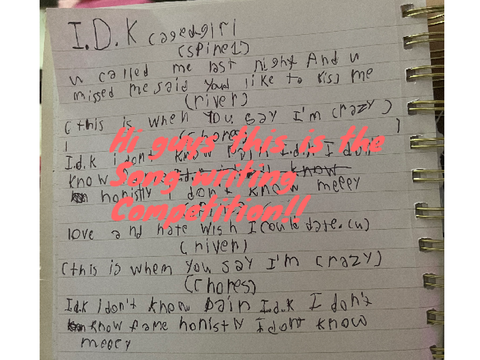 I.D.K cagedgirl
(spine1)
u called me last night And u
missed me said You'd like to kiss me
(river)
(this is when You say I'm crazy)
(chores)
Hi guys this is the
Song writing
Competition!!
I.d.k I don't know pain I.d.k I don't
know
honistly I don't know meecy
love and hate wish I could date. (u)
(river)
(this is when You say I'm crazy)
(chores)
I.d.k I don't know pain I.d.k I don't
know fame honistly I dont know
meecy